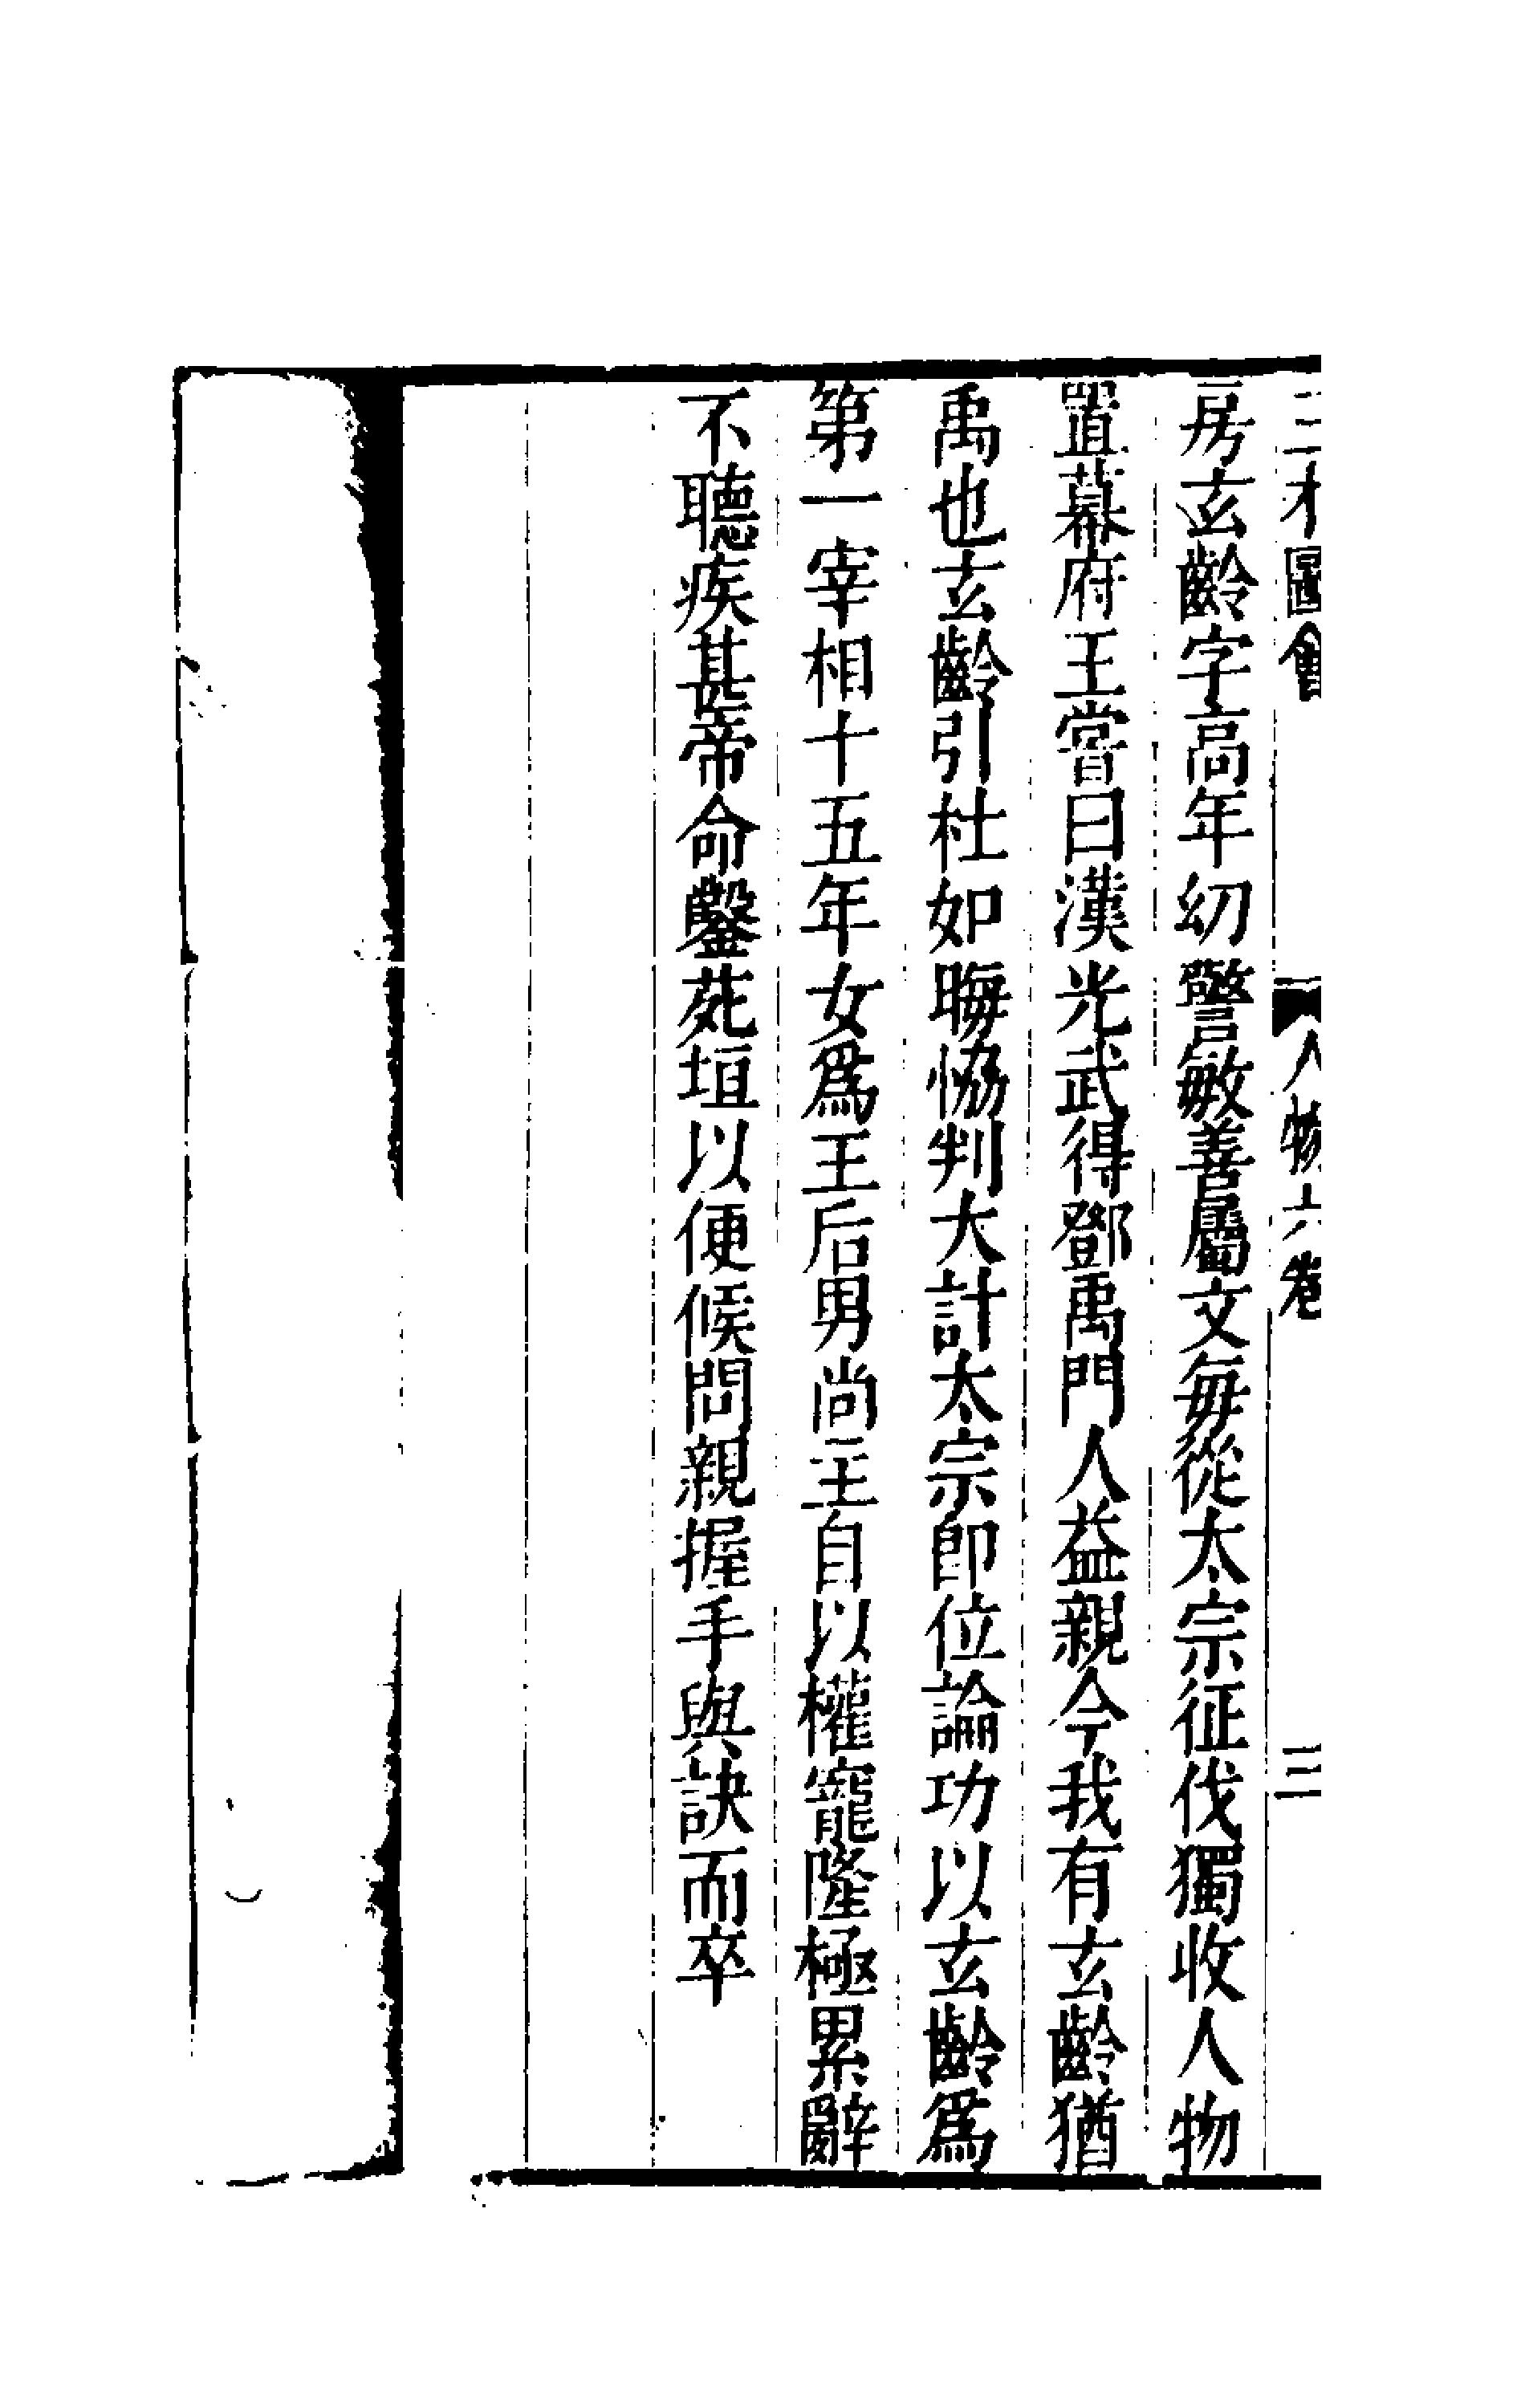 三才圖會 人物六卷 三
房玄齡字高年幼警敏善屬文每從太宗征伐獨收人物
置幕府王嘗曰漢光武得鄧禹門人益親今我有玄齡猶
禹也玄齡引杜如晦恊判大計太宗卽位論功以玄齡爲
第一宰相十五年女爲王后男尚主自以權寵隆極累辭
不聽疾甚帝命鑿苑垣以便候問親握手與訣而卒